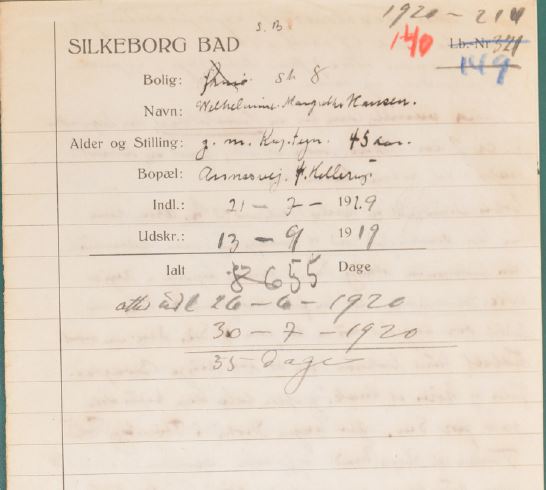 1920 - 214
S. B.
SILKEBORG BAD
140
Lb.-Nr 321
149
Bolig: st 8
Navn: Wilhelmine Margrethe Hansen.
Alder og Stilling: g. m. 45 aar.
Bopæl: Hellerup
Indl.: 21 - 7 - 1919
Udskr.: 13 - 9 1919
Ialt 55 Dage
atter indl 26 - 6 - 1920
30 - 7 - 1920
35 dage